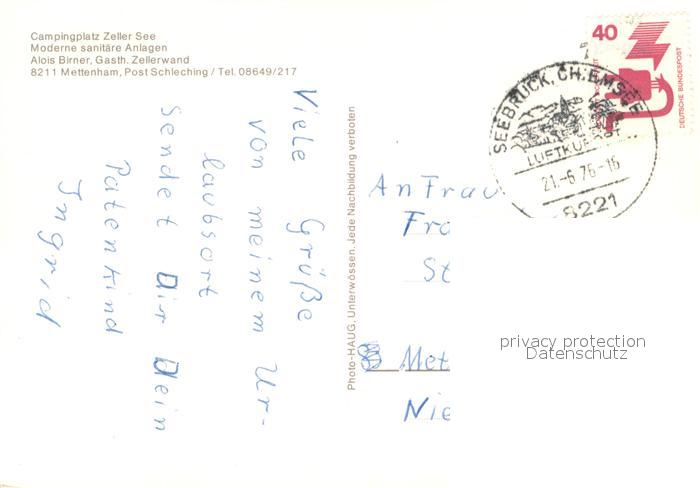 Campingplatz Zeller See
Moderne sanitäre Anlagen
Alois Birner, Gasth. Zellerwand
8211 Mettenham, Post Schleching / Tel. 08649/217
Viele Grüße
von meinem Ur-
laubsort
sendet Dir Dein
Patenkind
Ingrid
Photo-HAUG, Unterwössen. Jede Nachbildung verboten
40
DEUTSCHE BUNDESPOST
SEEBRUCK, CHIEMSEE
LUFTKURORT
21.-6.76-16
8221
An Frau
Fra
St
Met
Nie
privacy protection
Datenschutz